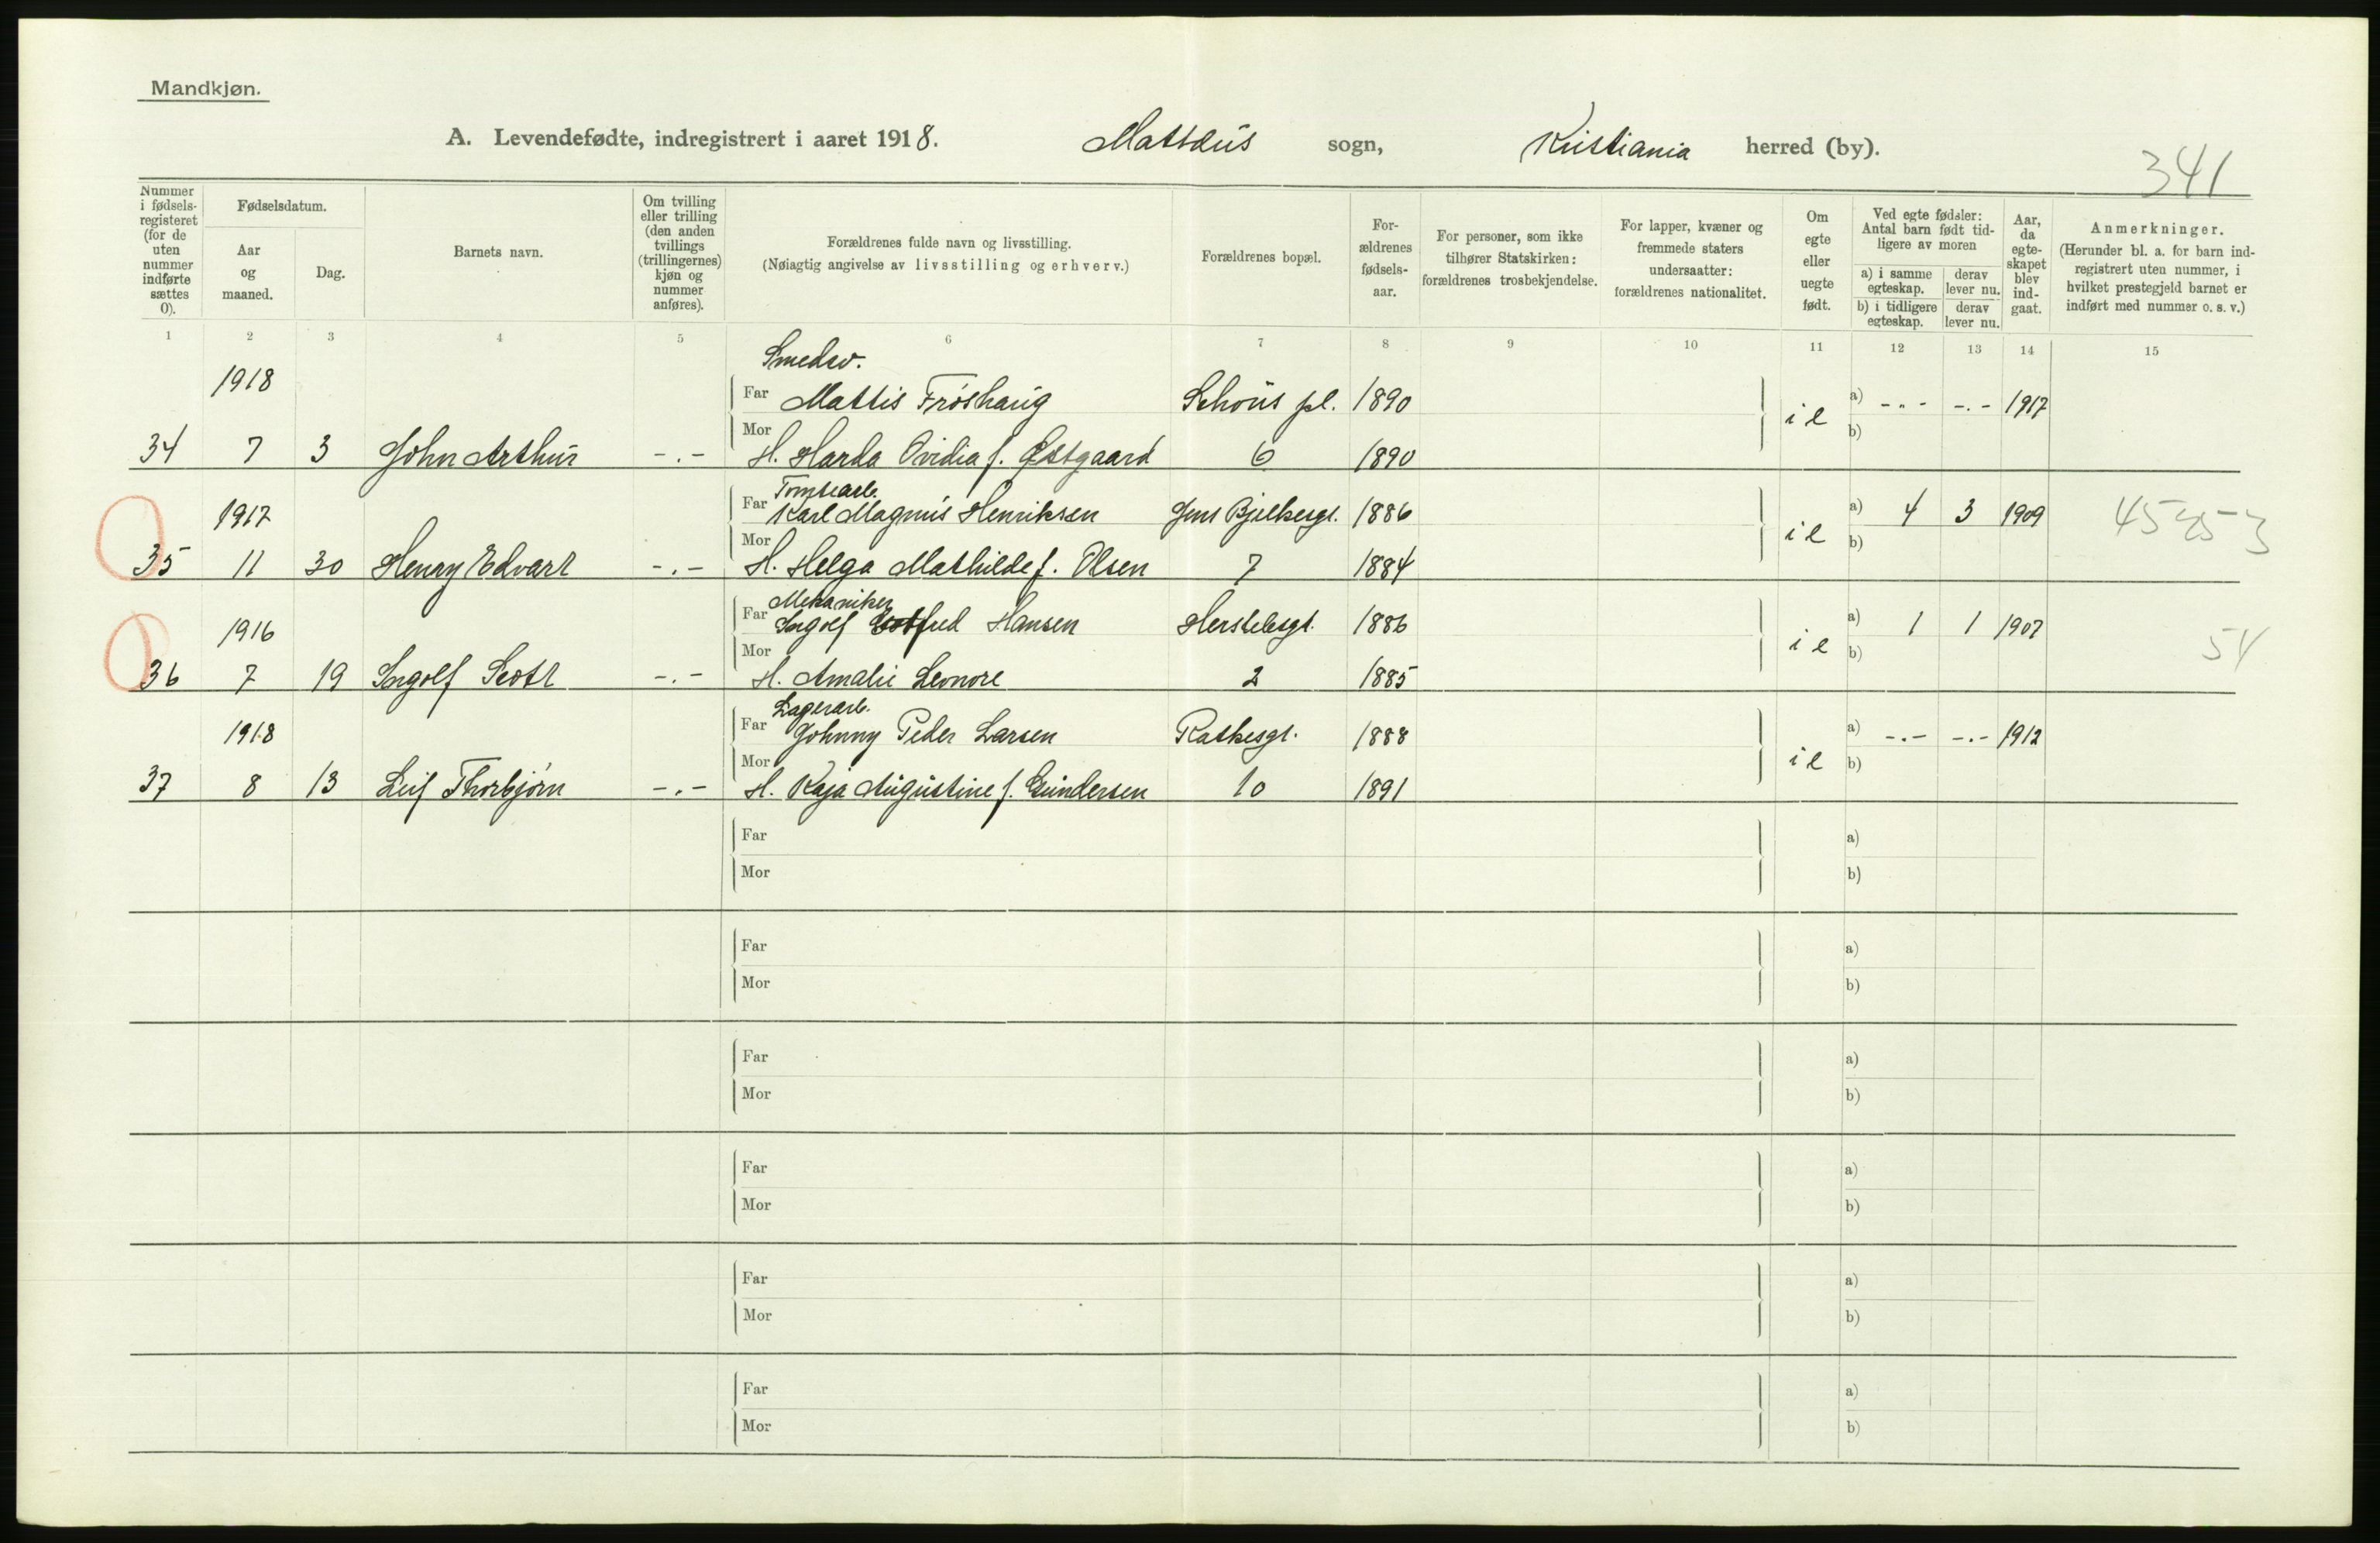 Mandkjøn.
A. Levendefødte, indregistrert i aaret 1918. Mattæus sogn, Kristiania herred (by).
341
Nummer i fødselsregisteret (for de uten nummer indførte sættes 0).
Fødselsdatum.
Aar og maaned.
Dag.
Barnets navn.
Om tvilling eller trilling (den anden tvillings (trillingernes) kjøn og nummer anføres).
Forældrenes fulde navn og livsstilling.
(Nøiagtig angivelse av livsstilling og erhverv.)
Forældrenes bopæl.
Forældrenes fødselsaar.
For personer, som ikke tilhører Statskirken: forældrenes trosbekjendelse.
For lapper, kvæner og fremmede staters undersaatter: forældrenes nationalitet.
Om egte eller uegte født.
Ved egte fødsler: Antal barn født tidligere av moren
a) i samme egteskap.
derav lever nu.
b) i tidligere egteskap.
derav lever nu.
Aar, da egteskapet blev indgaat.
Anmerkninger.
(Herunder bl. a. for barn indregistrert uten nummer, i hvilket prestegjeld barnet er indført med nummer o. s. v.)
1 2 3 4 5 6 7 8 9 10 11 12 13 14 15
Smedsv.
1918 Far Mattis Frøshaug Schous pl. 1890 i e a) -"- -.- 1917
34 7 3 John Arthur -.- Mor H. Harda Ovidia f. Østgaard 6 1890 b)
Tomtearb.
1917 Far Karl Magnus Henriksen Jens Bjelkesgt. 1886 i e a) 4 3 1909 45 3
35 11 30 Henry Edvart -.- Mor H. Helga Mathilde f. Olsen 7 1884 b)
Mekaniker
1916 Far Ingolf Hansen Herslebsgt. 1886 i e a) 1 1 1907 54
36 7 19 Ingolf -.- Mor H. Amalie Leonore 2 1885 b)
Lagerarb.
1918 Far Johnny Peder Larsen Rathesgt. 1888 i e a) -.- -.- 1912
37 8 13 Leif Thorbjørn -.- Mor H. Kaja Augustine f. Gundersen 10 1891 b)
Far a)
Mor b)
Far a)
Mor b)
Far a)
Mor b)
Far a)
Mor b)
Far a)
Mor b)
Far a)
Mor b)